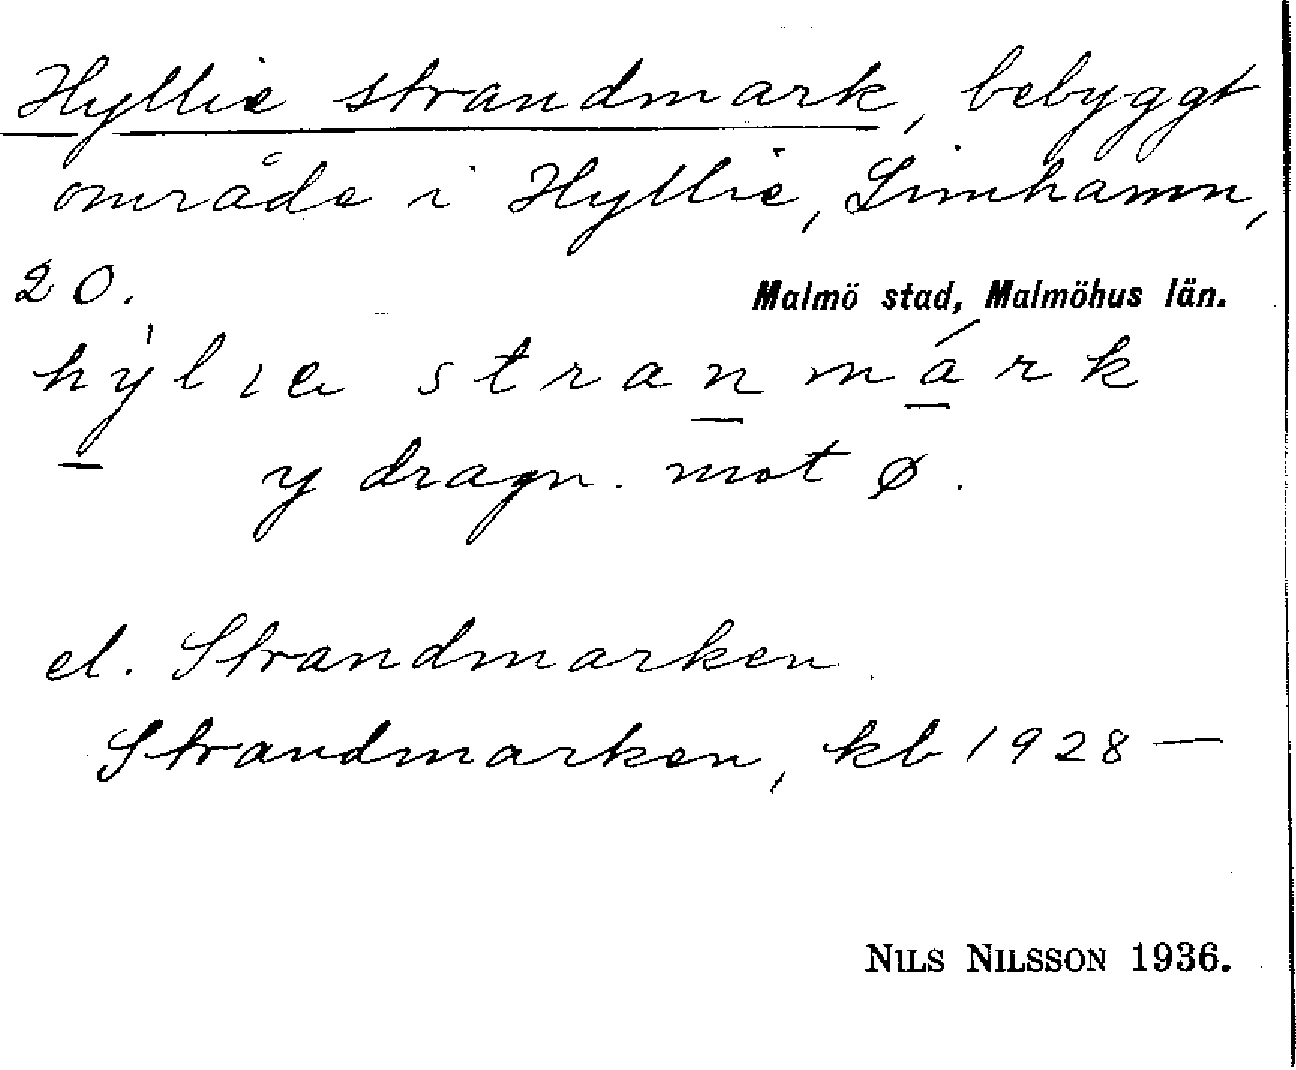 Hyllie strandmark, bebyggt
område i Hyllie, Limhamn,
20. Malmö stad, Malmöhus län.
hýlıa stranmárk
y dragn. mot ø.
el. Strandmarken.
Strandmarken, kb 1928—
NILS NILSSON 1936.